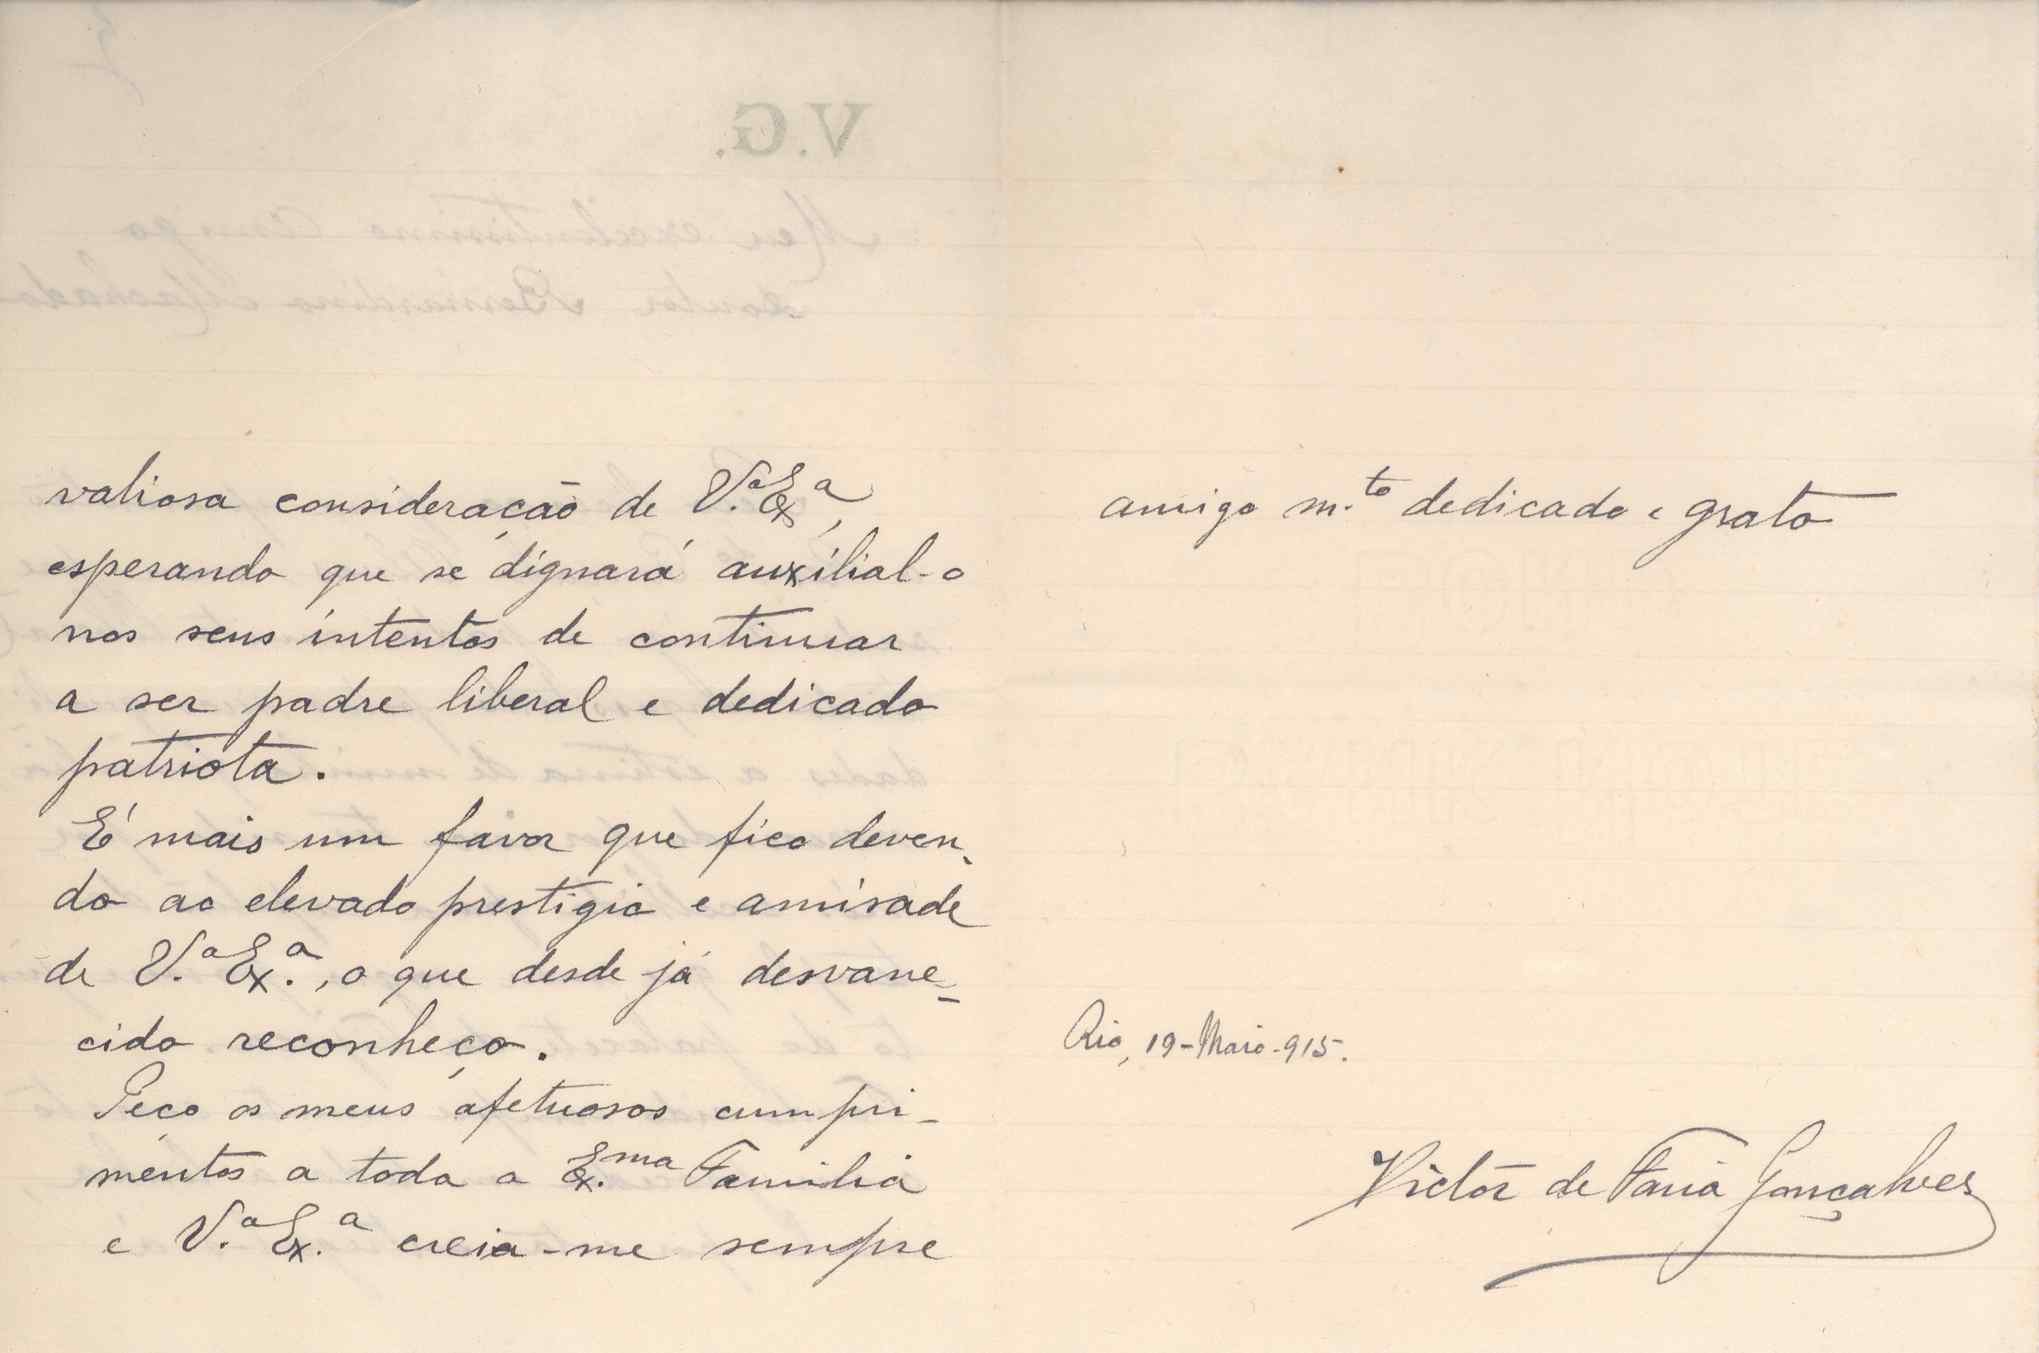 valiosa consideração de V.ª Ex.ª,
esperando que se dignará auxilial-o
nos seus intentos de continuar
a ser padre liberal e dedicado
patriota.
É mais um favor que fico deven-
do ao elevado prestigio e amisade
de V.ª Ex.ª, o que desde já desvane-
cido reconheço.
Peço os meus afetuosos cumpri-
mentos a toda a Ex.ma Familia
e V.ª Ex.ª creia-me sempre
amigo m.to dedicado e grato
Rio, 19-Maio-915.
Victor de Faria Gonçalves
V.G.
Meu excelentissimo amigo
doutor Bernardino Machado